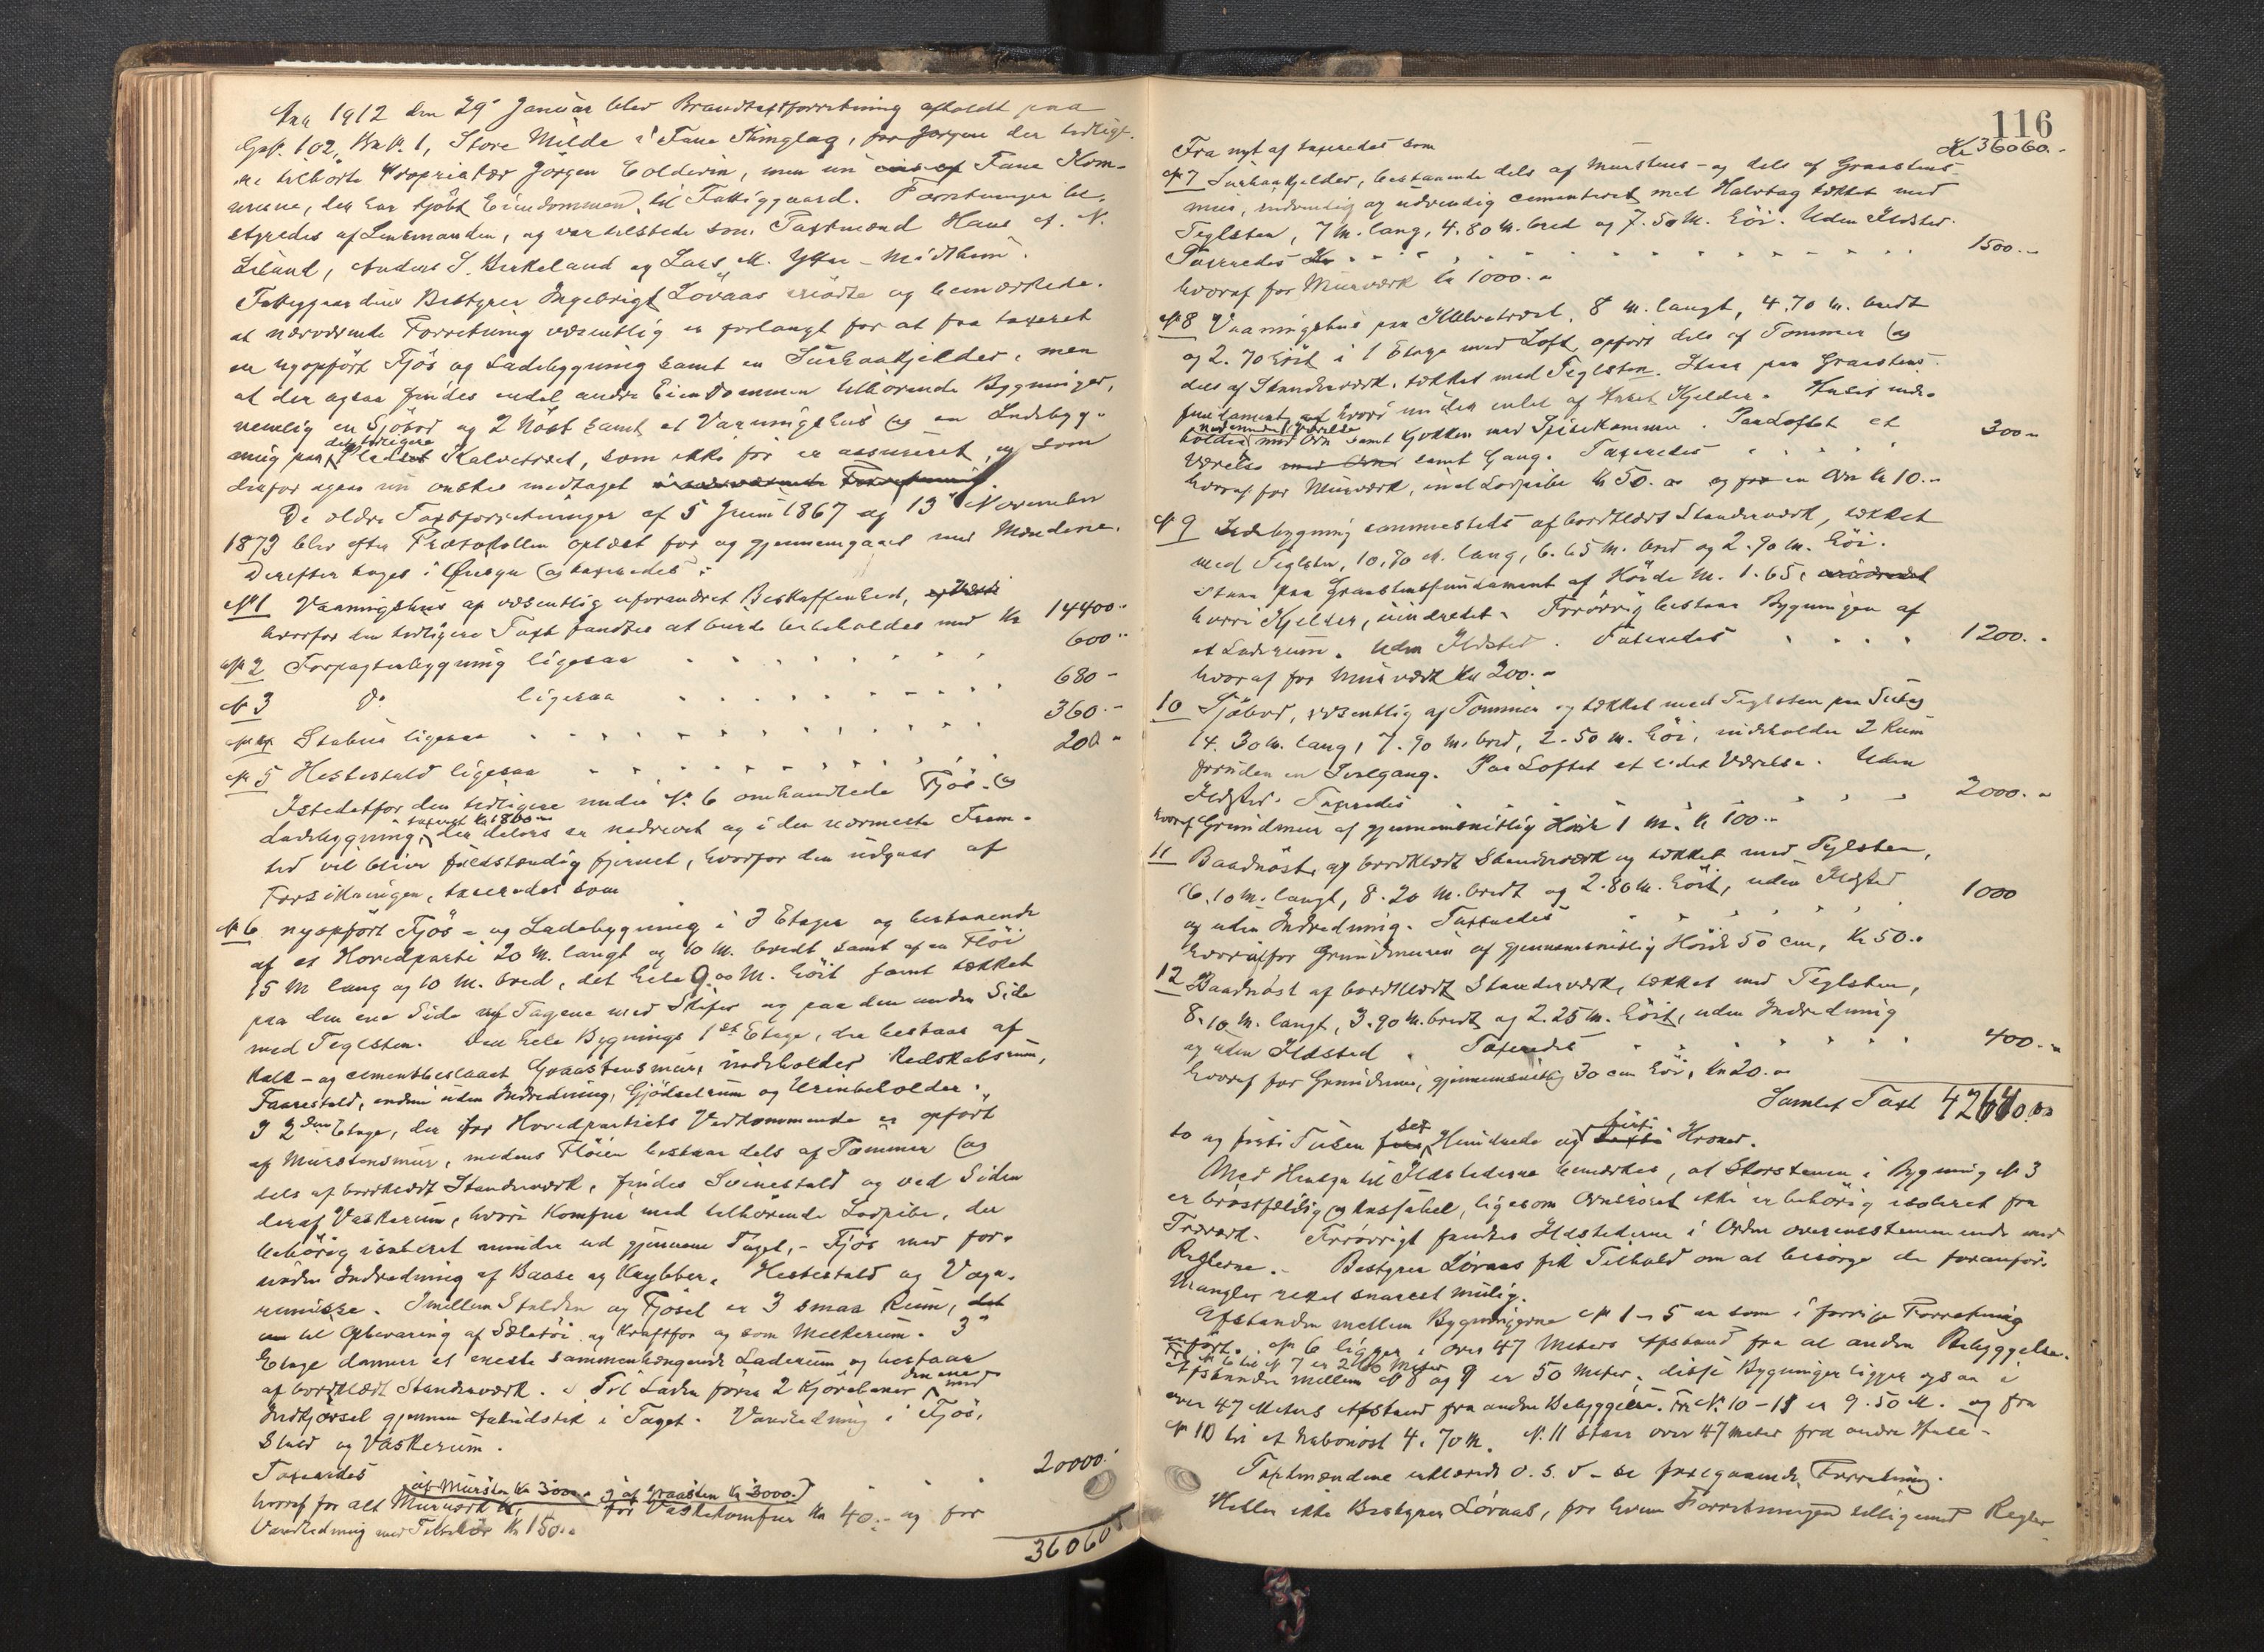 Aar 1912 den 29' Januar blev Brandtaxtforretning afholdt paa
Gns. 102, Bns. 1, Store Milde i Fane Thinglag, der tidlige-
re tilhörte Proprietær Jörgen Coldevin, men nu Fane Kom-
mune, der har kjöbt Eiendommen til Fattiggaard. Forretningen be-
styredes af Lensmanden, og var tilstede som Taxtmænd Hans A. N.
Liland, Anders S. Birkeland og Lars M. Ytre-Midthun.
Fattiggaardens Bestyrer Ingebrigt Lövaas mödte og bemærkede,
at nærværende Forretning væsentlig er forlangt for at faa taxeret
en nyopført Fjös og Ladebygning samt en Surhaakjelder, men
at der ogsaa findes endel andre Eiendommen tilhörende Bygninger,
nemlig en Sjöbod og 2 Nöst samt et Vaaningshus og en Ladebyg-
ning paa det tidligere Pladset Kalvetræet, som ikke för er assureret, og som
derfor ogsaa nu önskes medtaget i nærværende Forretning
De ældre Taxtforretninger af 5 Juni 1867 og 13de November
1879 blev efter Protokollen oplæst for og gjennemgaaet med Mændene.
Derefter toges i Öiesyn og taxeredes:
No 1 Vaaningshus af væsentlig uforandret Beskaffenhed,
hvorfor den tidligere Taxt fandtes at burde beibeholdes med Kr 14400..
No 2 Forpagterbygning ligesaa 600..
No 3 Do ligesaa 680 -
No 4 Stabur ligesaa 360.-
No 5 Hestestald ligesaa 200 -
Istedetfor den tidligere under No. 6 omhandlede Fjös- og
Ladebygning, taxeret Kr 1800 der delvis er nedrevet og i den nærmeste Frem-
tid vil blive fuldstændig fjernet, hvorfor den udgaar af
Forsikringen, taxeredes som
No 6 nyopfört Fjös- og Ladebygning i 3 Etager og bestaaende
af et Hovedparti 20 M. langt og 10 M. bredt samt af en Flöi
15 M lang og 10 M. bred, det hele 9.00 M. höit samt tækket
paa den ene Side af Tagene med Skifer og paa den anden Side
med Teglsten. Den hele Bygnings 1ste Etage, der bestaar af
kalk- og cementbeslaaet Graastensmur, indeholder Redskabsrum,
Faarestald, endnu uden Indredning, Gjödselrum og Urinbeholder.
I 2den Etage, der for Hovedpartiets Vedkommende er opfört
af Murstensmur, medens Flöien bestaar dels af Tømmer og
dels af bordklædt Standerværk, findes Svinestald og ved Siden
deraf Vaskerum, hvori Komfur med tilhörende Lodpibe, der
behörig isoleret munder ud gjennem Taget, - Fjös med for-
nöden Indredning af Baase og Krybber, Hestestald og Vogn-
remisse. Imellem Stalden og Fjöset er 3 smaa Rum,
til Opbevaring af Sæletöi og Kraftfor og som Melkerum. 3die
Etage danner et eneste sammenhængende Laderum og bestaar
af bordklædt Standerværk. Til Laden förer 2 Kjörebroer, den ene med
Indkjörsel gjennem Takudstik i Taget. Vandledning i Fjös,
Stald og Vaskerum.
Taxeredes 20000.
hvoraf for alt Murværk (af Mursten Kr 3000.- og af Graasten Kr 3000.) for Vaskekomfur Kr 40.- og for
Vandledning med Tilbehör Kr 150.-
36060
116
Fra nyt af taxeredes som Kr 36060.-
No 7 Surhaakjelder, bestaaende dels af Murstens- og dels af Graastens-
mur, indvendig og udvendig cementeret med Halvtag tækket med
Teglsten, 7 M. lang, 4.80 M. bred og 7.50 M. höi. Uden Ildsted.
Taxeredes 1500.-
hvoraf for Murværk Kr 1000.-
No 8 Vaaningshus paa Kalvetræet, 8 M. langt, 4.70 M. bredt
og 2.70 höit i 1 Etage med Loft, opfört dels af Tømmer og
dels af Standerværk, tækket med Teglsten. Staar paa Graastens-
fundament, hvori under endel af Huset Kjelder. Huset inde-
holder nedenunder Værelse med Ovn samt Kjökken med Spisekammer. Paa Loftet et
Værelse med Ovn samt Gang. Taxeredes 300 -
hvoraf for Murværk, incl. Lodpibe Kr 50.- og for en Ovn Kr 10.-
No 9 Ladebygning sammesteds af bordklædt Standerværk, tækket
med Teglsten, 10.70 M. lang, 6.65 M. bred og 2.90 M. höi.
Staar paa Graastensfundament af Höide M. 1.65,
hvori Kjelder, uindredet. Forövrig bestaar Bygningen af
et Laderum. Uden Ildsted. Taxeredes 1200.-
hvoraf for Murværk Kr 200.-
10 Sjöbod, væsentlig af Tømmer og tækket med Teglsten paa Sutag
14.30 M. lang, 7.90 M. bred, 2.50 M. höi, indeholder 2 Rum
foruden en Svalgang. Paa Loftet et lidet Værelse. Uden
Ildsted. Taxeredes 2000.-
hvoraf Grundmur af gjennemsnitlig Höide 1 M. Kr 100.-
11 Baadnöst, af bordklædt Standerværk og tækket med Teglsten,
16.10 M. langt, 8.20 M. bredt og 2.80 M. höit, uden Ildsted
og uden Indredning. Taxeredes 1000
hvoraf for Grundmuren af gjennemsnitlig Höide 50 cm, Kr 50.-
12 Baadnöst af bordklædt Standerværk, tækket med Teglsten,
8.10 M. langt, 3.90 M. bredt og 2.25 M. höit, uden Indredning
og uden Ildsted. Taxeredes 400.-
hvoraf for Grundmur, gjennemsnitlig 30 cm höi, Kr 20.-
Samlet Taxt 42640.00
to og firti Tusen sex Hundrede og firti Kroner.
Med Hensyn til Ildstederne bemærkes, at Skorstenen i Bygning No 3
er bröstfældig og kassabel, ligesom Ovnsröret ikke er behörig isoleret fra
Træværk. Forövrigt fandtes Ildstederne i Orden overensstemmende med
Reglerne. - Bestyrer Lövaas fik Tilhold om at besörge de foranför.
Mangler rettet snarest mulig.
Afstanden mellem Bygningerne No 1-5 er som i forrige Forretning
anfört. No 6 ligger i over 47 Meters Afstand fra al anden Bebyggelse.
Fra No 6 til No 7 er 2.60 Meter
Afstanden mellem No 8 og 9 er 50 Meter, disse Bygninger ligger ogsaa i
over 47 Meters Afstand fra anden Bebyggelse. Fra No. 10 - 12 er 9.50 M. og fra
No 10 til et Nabonöst 4.70 M. No. 11 staar over 47 Meter fra andre Huse -
Taxtmændene erklærede o. s. v. - se foregaaende Forretning.
Heller ikke Bestyrer Lövaas, for hvem Forretningen tilligemed Regler-